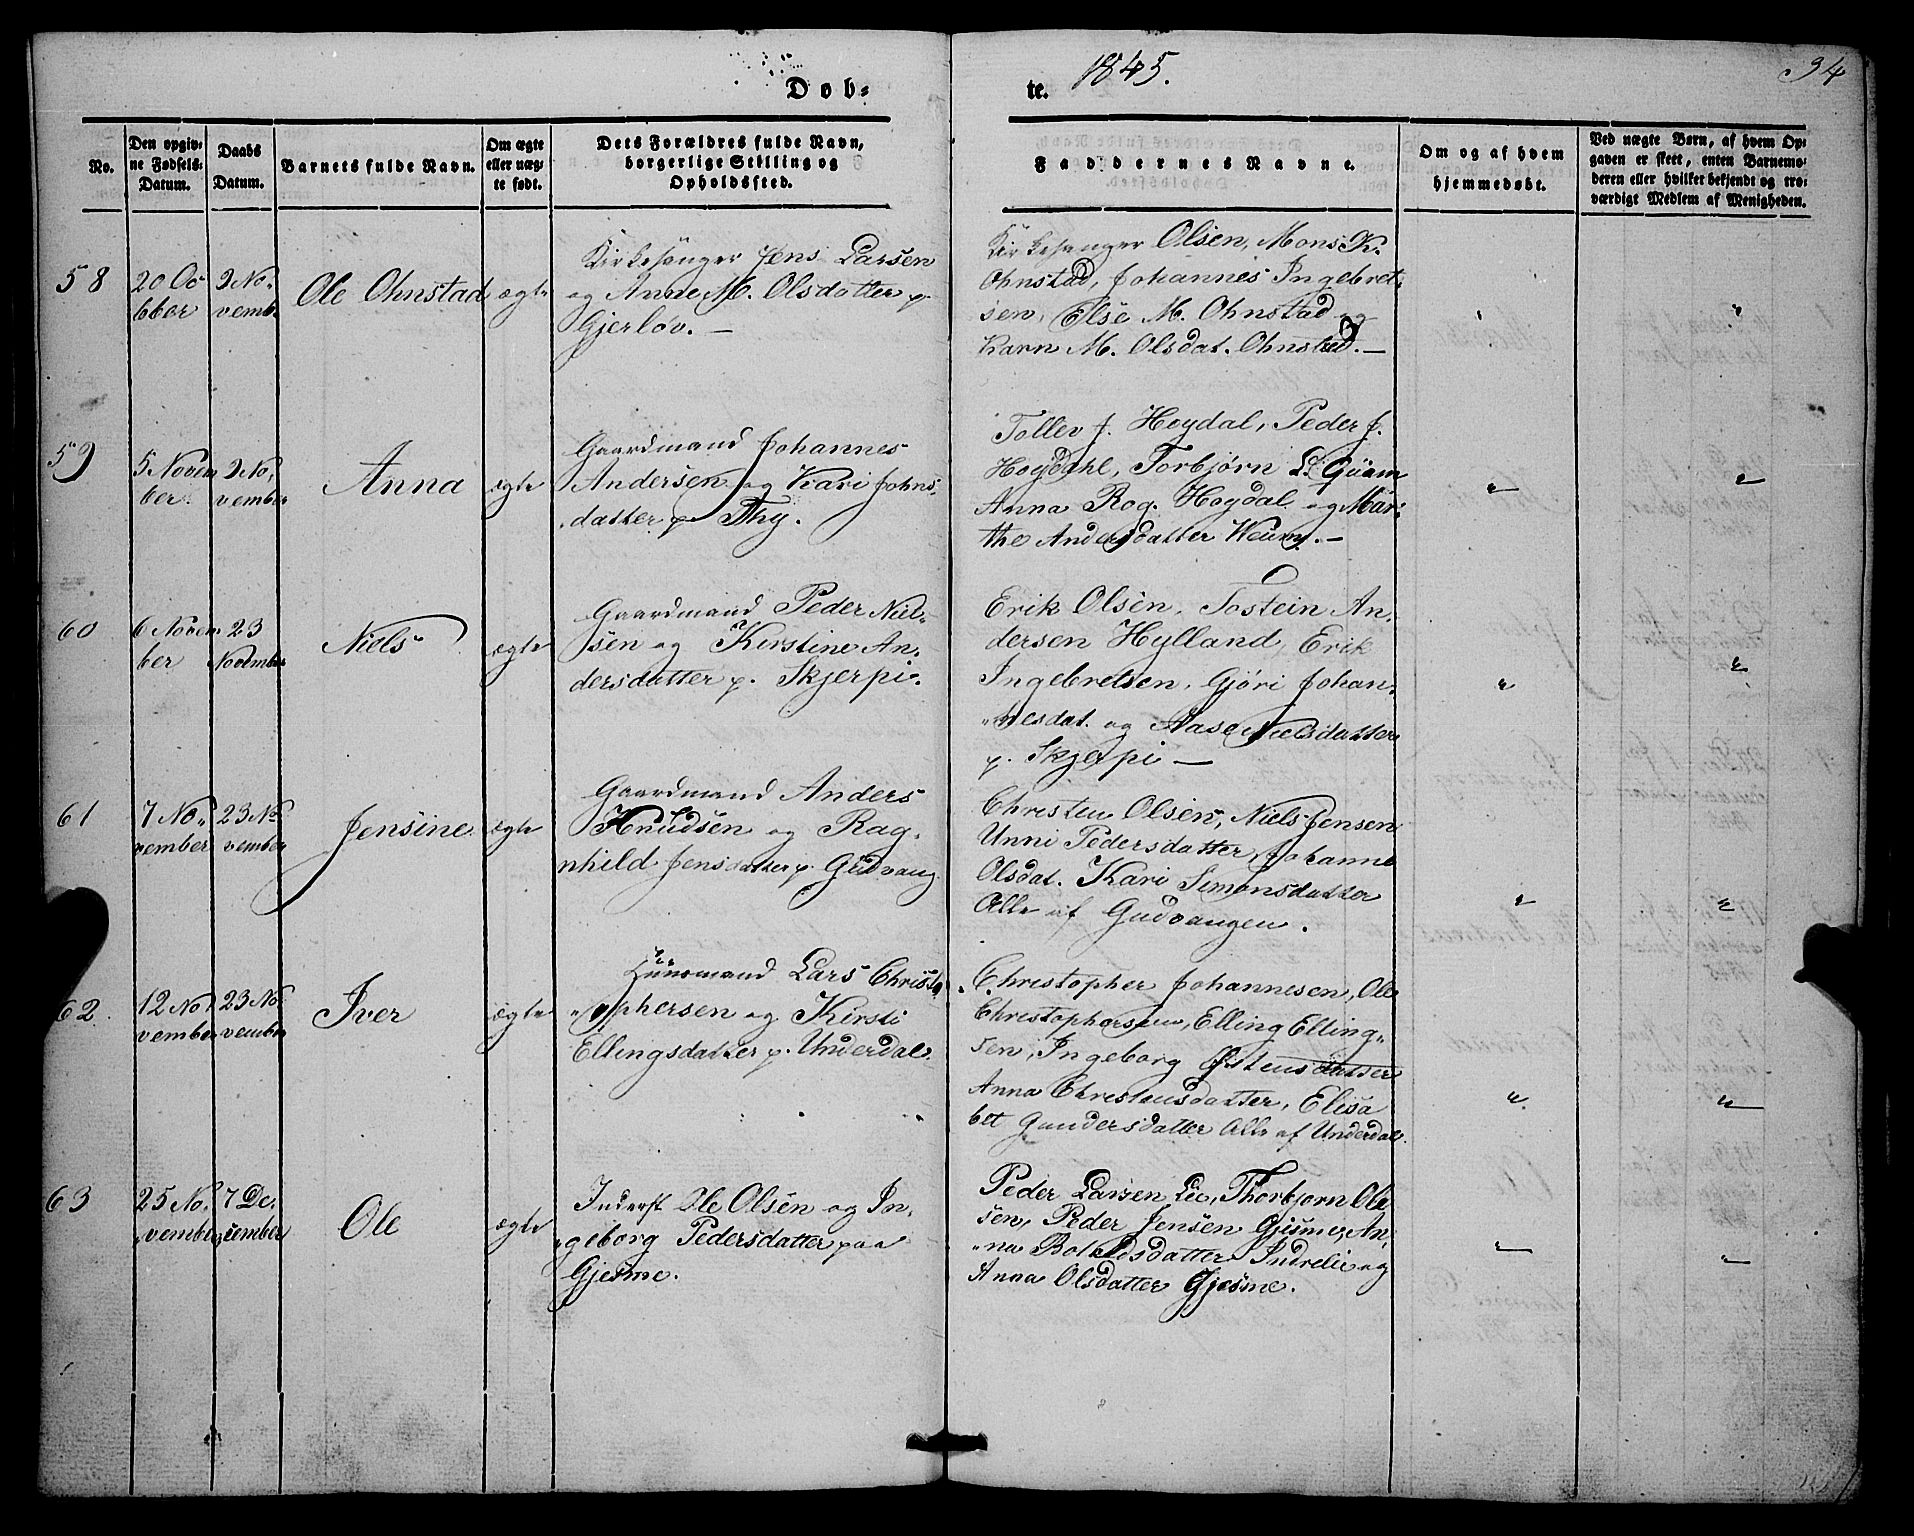 Døb-
te. 1845.
34
No.
Den opgiv-
ne Fødsels-
Datum.
Daabs
Datum.
Barnets fulde Navn.
Om ægte
eller uæg-
te født.
Dets Forældres fulde Navn,
borgerlige Stilling og
Opholdssted.
Faddernes Navne.
Om og af hvem
hjemmedøbt.
Ved uægte Børn, af hvem Op-
gaven er skeet, enten Barnemo-
deren eller hvilket bekjendt og tro-
værdigt Medlem af Menigheden.
58
20 Oc
tber
9 No-
vemb.
Ole Ohnstad
ægte
Kirkesanger Jens Larsen
og Anne M. Olsdatter p.
Gjerløv. —
Kirkesanger Olsen, Mons K.
Ohnstad, Johannes Ingebret-
sen, Else M. Ohnstad og
Karn M. Olsdat. Ohnstad. —
59
5 Novem
ber.
9 No-
vember
Anna
ægte
Gaardmand Johannes
Andersen og Kari Johns-
datter p. Thy.
Tollev J. Høydal, Peder J.
Høydahl, Torbjørn L. Qüam
Anna Rog. Høydal og Mar-
the Andersdatter Weum. —
60
6 Novem
ber
23
November
Niels
ægte
Gaardmand Peder Niel-
sen og Kirstine An-
dersdatter p. Skjerpi.
Erik Olsen, Tostein An-
dersen Hylland, Erik
Ingebretsen, Gjøri Johan-
nesdat. og Aase Nielsdatter
p. Skjerpi —
61
7 No-
vember
23 No
vember
Jensine
ægte
Gaardmand Anders
Knudsen og Rag-
nhild Jensdatter p. Gudvang
Christen Olsen, Niels Jensen
Unni Pedersdatter, Johanne
Olsdat. Kari Simonsdatter
Alle af Gudvangen.
62.
12 No
vember
23 No
vember
Iver
ægte
Huusmand Lars Christ
ophersen og Kirsti
Ellingsdatter p. Underdal.
Christopher Johannesen, Ole
Christophersen, Elling Elling-
sen, Ingeborg Østensdatter
Anna Christensdatter, Elisa
bet Gundersdatter Alle af Underdal.
63
25 No-
vember
7 De-
cember
Ole
ægte
Inderst Ole Olsen og In-
geborg Pedersdatter paa
Gjesme.
Peder Larsen Lie, Thorbjorn Ole
sen, Peder Jensen Gjesme, An-
na Botolfsdatter Indrelie og
Anna Olsdatter Gjesme.